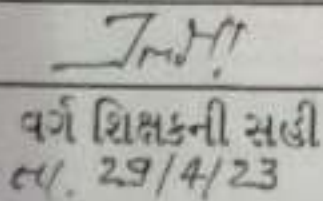 વર્ગ શિક્ષકની સહી
તા. 29/4/23